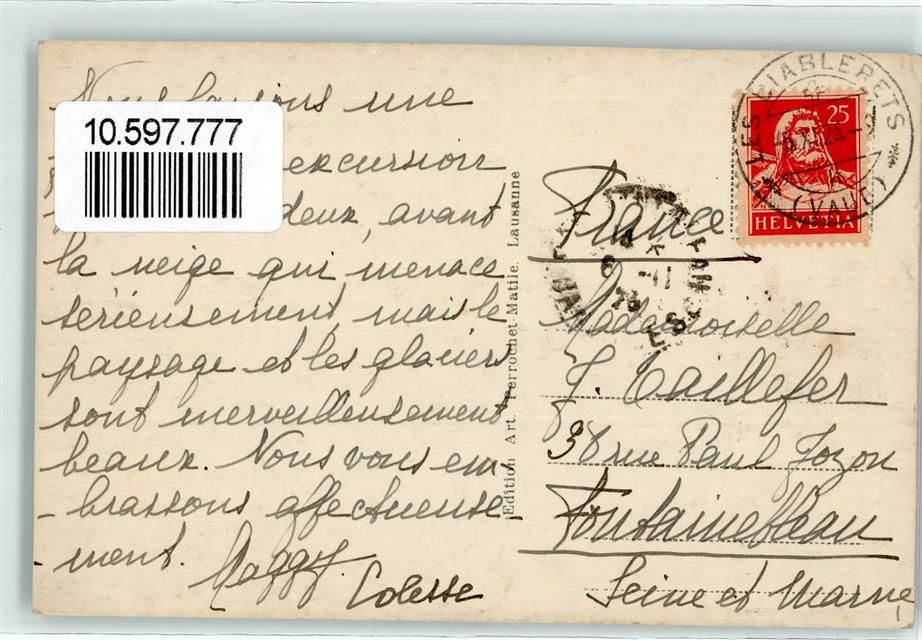 Nous faisons une
excursion
deux, avant
la neige qui menace
sérieusement, mais le
paysage et les glaciers
sont merveilleusement
beaux. Nous vous em-
-brassons affectueuse
-ment. Maggy.
10.597.777
Edition Art. Perrochet-Matile. Lausanne
LES DIABLERETS
(VAUD)
25
HELVETIA
France
Mademoiselle
J. Taillefer
38 rue Paul Jozon
Fontainebleau
Seine et Marne
1